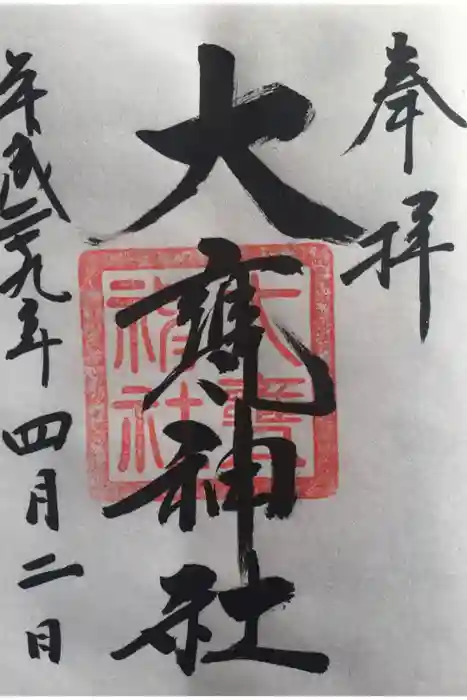 奉拝
大甕神社
平成二十九年四月二日
大甕神社